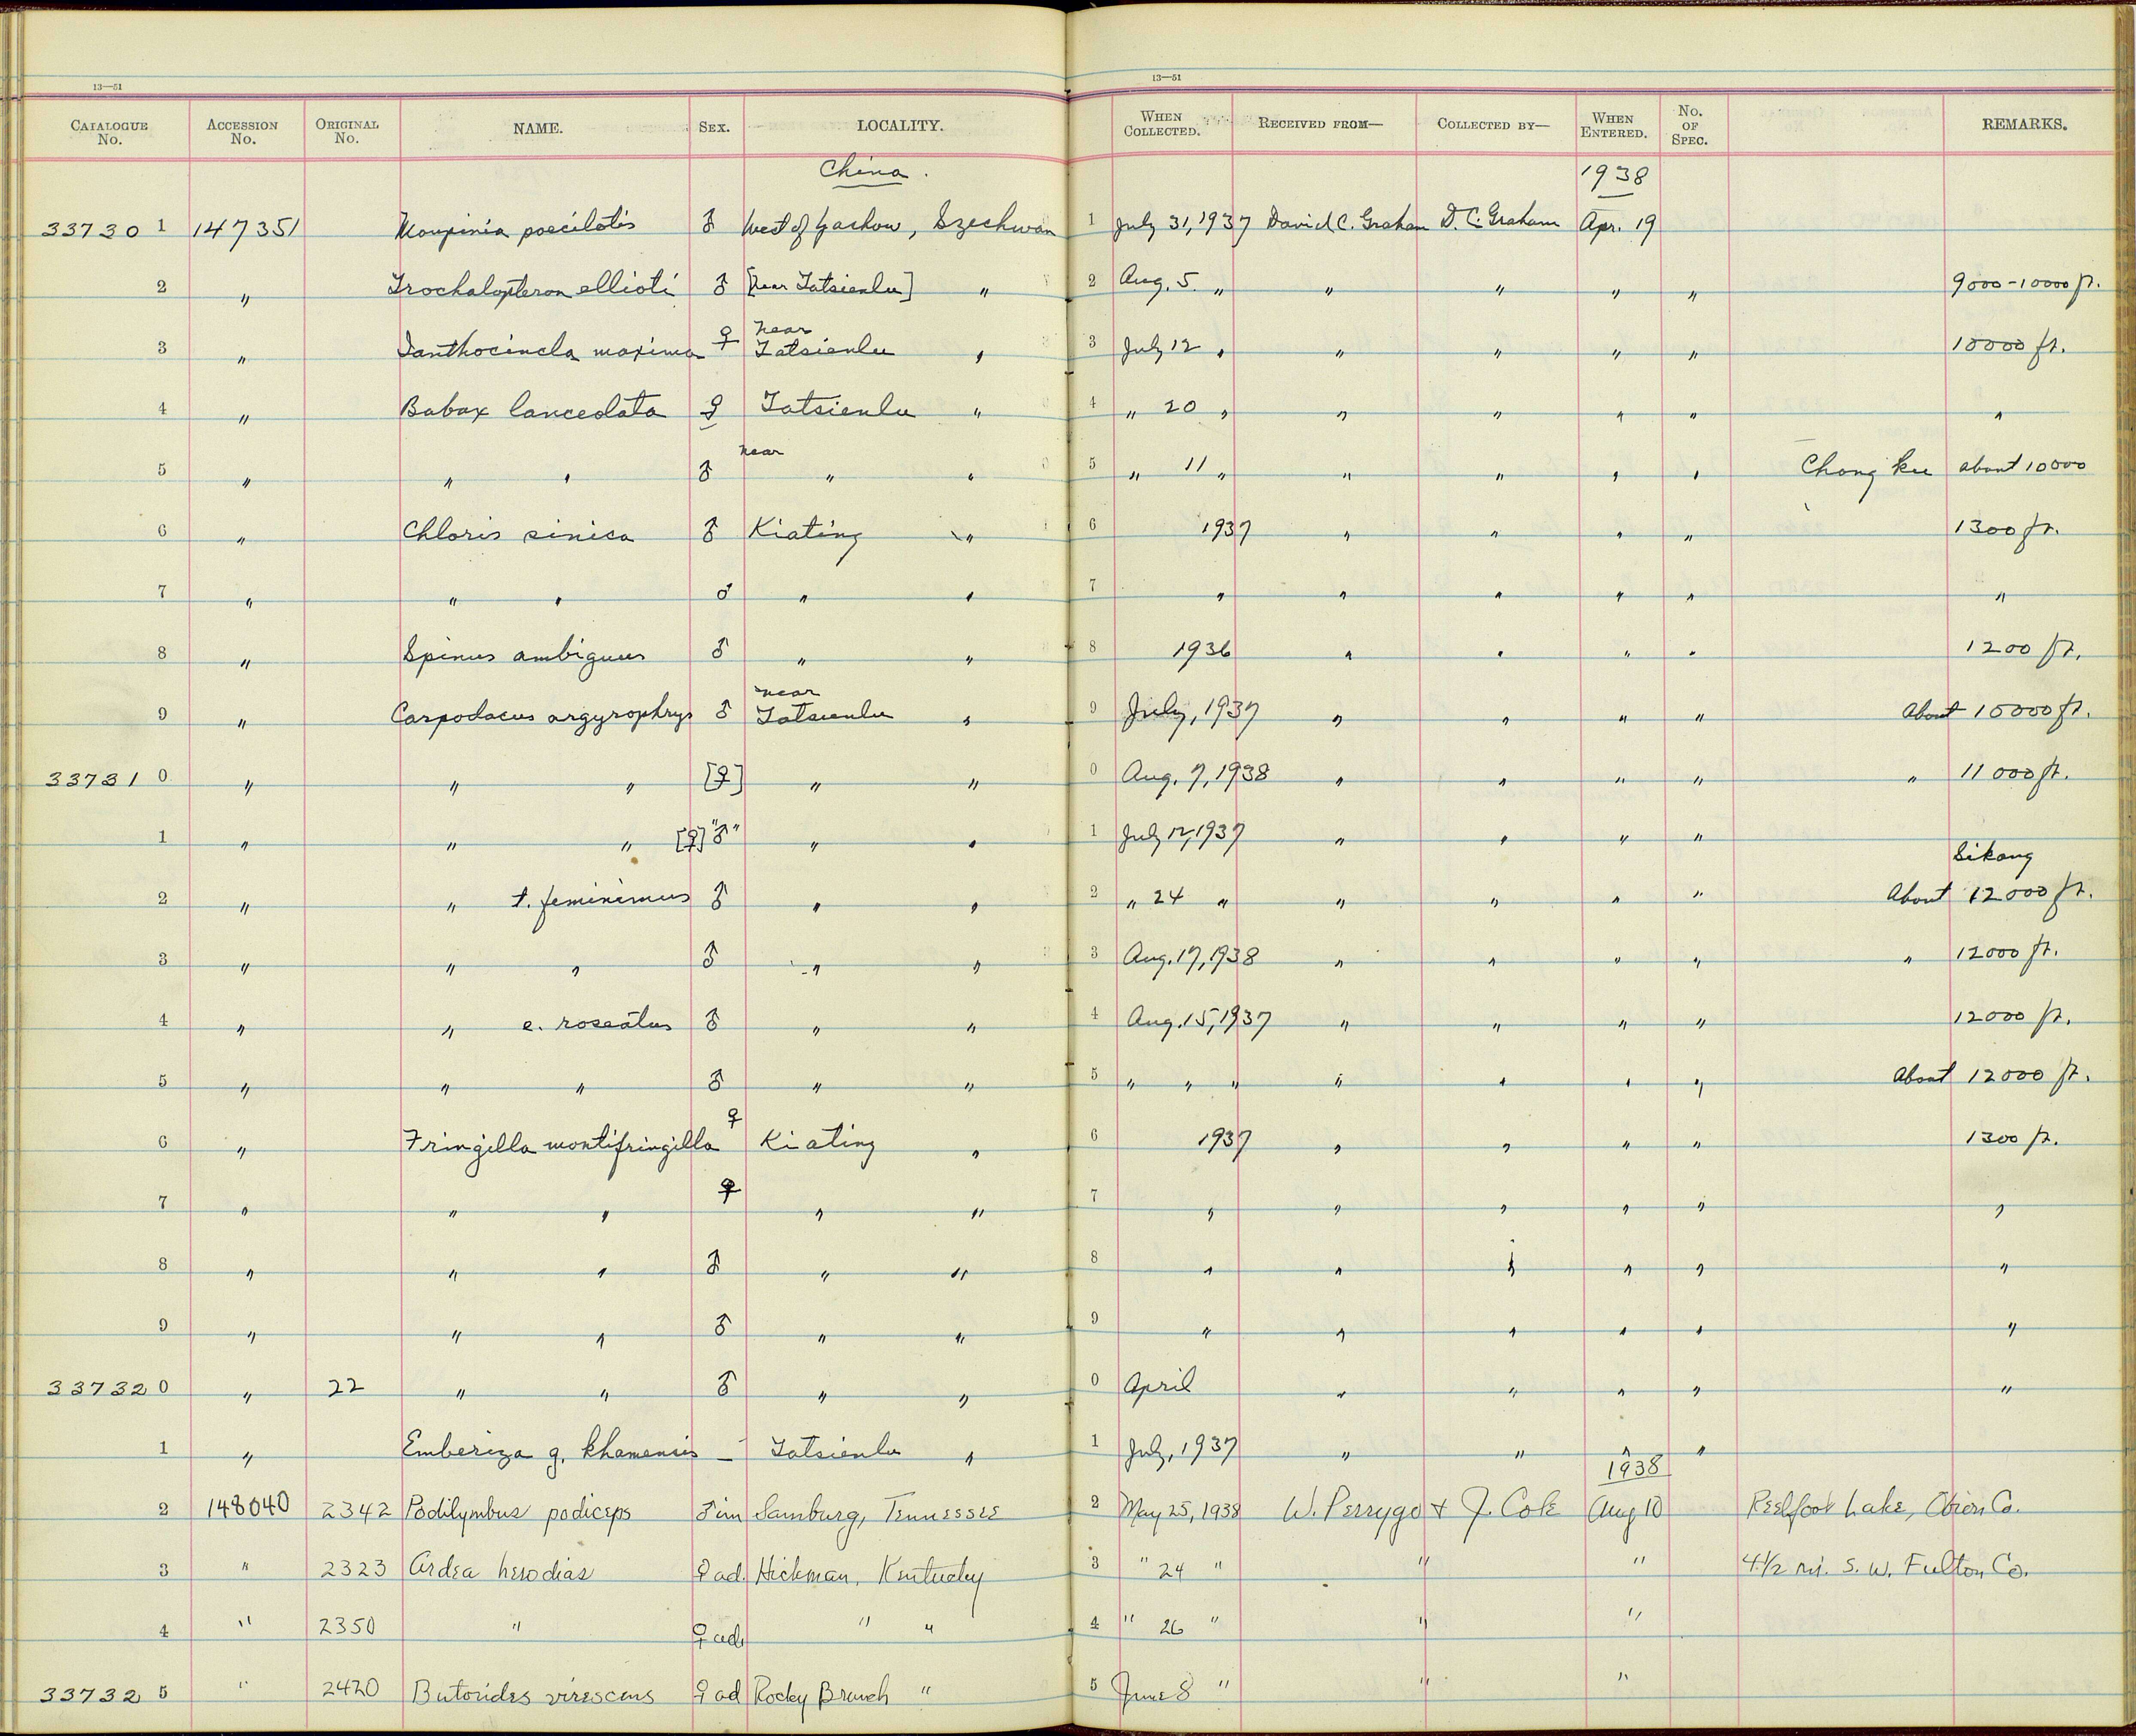 13—51 13—51
CATALOGUE No. ACCESSION No. ORIGINAL No. NAME. SEX. LOCALITY. WHEN COLLECTED. RECEIVED FROM— COLLECTED BY— WHEN ENTERED. No. OF SPEC. REMARKS.
China. 1938
33730 1 147351 Moupinia poecilotis ♂ West of Yachow, Szechwan 1 July 31, 1937 David C. Graham D. C. Graham Apr. 19
2 " Trochalopteron ellioti ♂ [near Tatsienlu] " 2 Aug. 5 " " " " " 9000-10000 ft.
3 " Ianthocincla maxima ♀ near Tatsienlu " 3 July 12 " " " " " 10000 ft.
4 " Babax lanceolata ♀ Tatsienlu " 4 " 20 " " " " " "
5 " " " ♂ near " " 5 " 11 " " " " " Chong ku about 10000
6 " Chloris sinica ♂ Kiating " 6 1937 " " " " 1300 ft.
7 " " " ♂ " " 7 " " " " " "
8 " Spinus ambiguus ♂ " " 8 1936 " " " " 1200 ft.
9 " Carpodacus argyrophrys ♂ near Tatsienlu " 9 July, 1937 " " " " About 10000 ft.
33731 0 " " " [♀] " " 0 Aug. 7, 1938 " " " " " 11000 ft.
1 " " " [♀] "♂" " " 1 July 12, 1937 " " " "
Sikong
2 " " t. femininus ♂ " " 2 " 24 " " " " " About 12000 ft.
3 " " " ♂ " " 3 Aug. 17, 1938 " " " " " 12000 ft.
4 " " e. roseatus ♂ " " 4 Aug. 15, 1937 " " " " 12000 ft.
5 " " " ♂ " " 5 " " " " " " " About 12000 ft.
6 " Fringilla montifringilla ♀ Kiating " 6 1937 " " " " 1300 ft.
7 " " " ♀ " " 7 " " " " " "
8 " " " ♂ " " 8 " " " " " "
9 " " " ♂ " " 9 " " " " " "
33732 0 " 22 " " ♂ " " 0 April " " " " "
1 " Emberiza g. khamensis — Tatsienlu " 1 July, 1937 " " " "
1938
2 148040 2342 Podilymbus podiceps ♂ im Samburg, Tennessee 2 May 25, 1938 W. Perrygo + J. Cole Aug 10 Reelfoot Lake, Obion Co.
3 " 2323 Ardea herodias ♀ ad. Hickman, Kentucky 3 " 24 " " " 4 1/2 mi. S. W. Fulton Co.
4 " 2350 " ♀ ad. " " 4 " 26 " " "
33732 5 " 2420 Butorides virescens ♀ ad Rocky Branch " 5 June 8 " " "